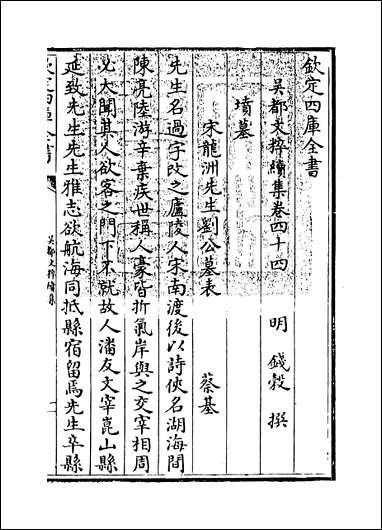 欽定四庫全書
吳都文粹續集卷四十四
明 錢穀 撰
墳墓
宋龍洲先生劉公墓表 蔡基
先生名過字改之廬陵人宋南渡後以詩俠名湖海間
陳亮陸游辛棄疾世稱人豪皆折氣岸與之交宰相周
必大聞其人欲客之門下不就故人潘友文宰崑山縣
延致先生先生雅志欲航海同抵縣宿留焉先生卒縣
吳都文粹續集